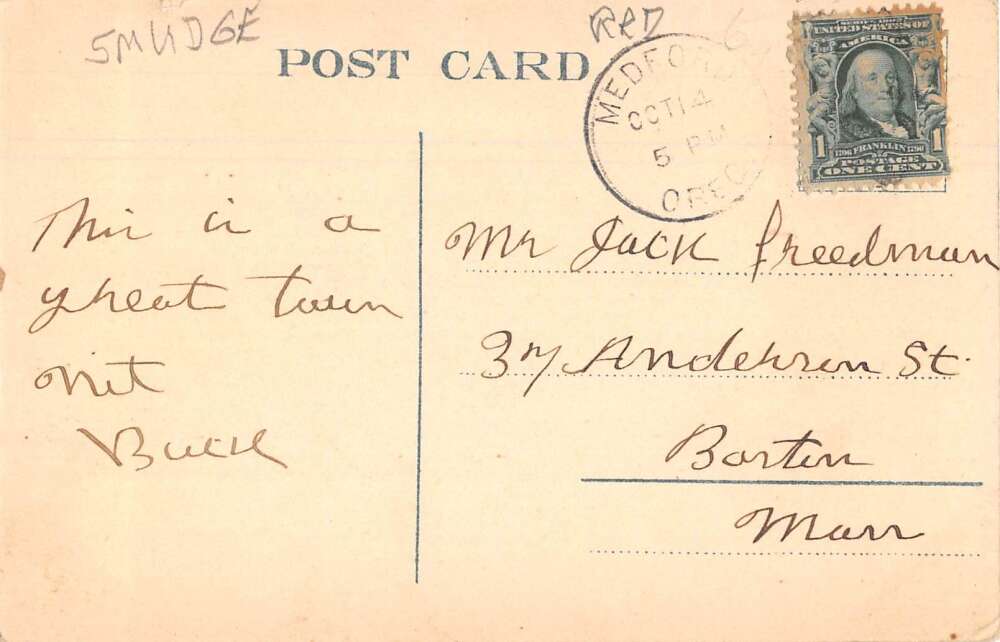 SMUDGE
RPD
POST CARD
MEDFORD
OCT 14
5 PM
OREG.
SERIES 1902
UNITED STATES OF
AMERICA
1706 FRANKLIN 1790
1 1
POSTAGE
ONE CENT
This is a
great town
nit
Buck
Mr Jack Freedman
37 Anderson St.
Boston
Mass